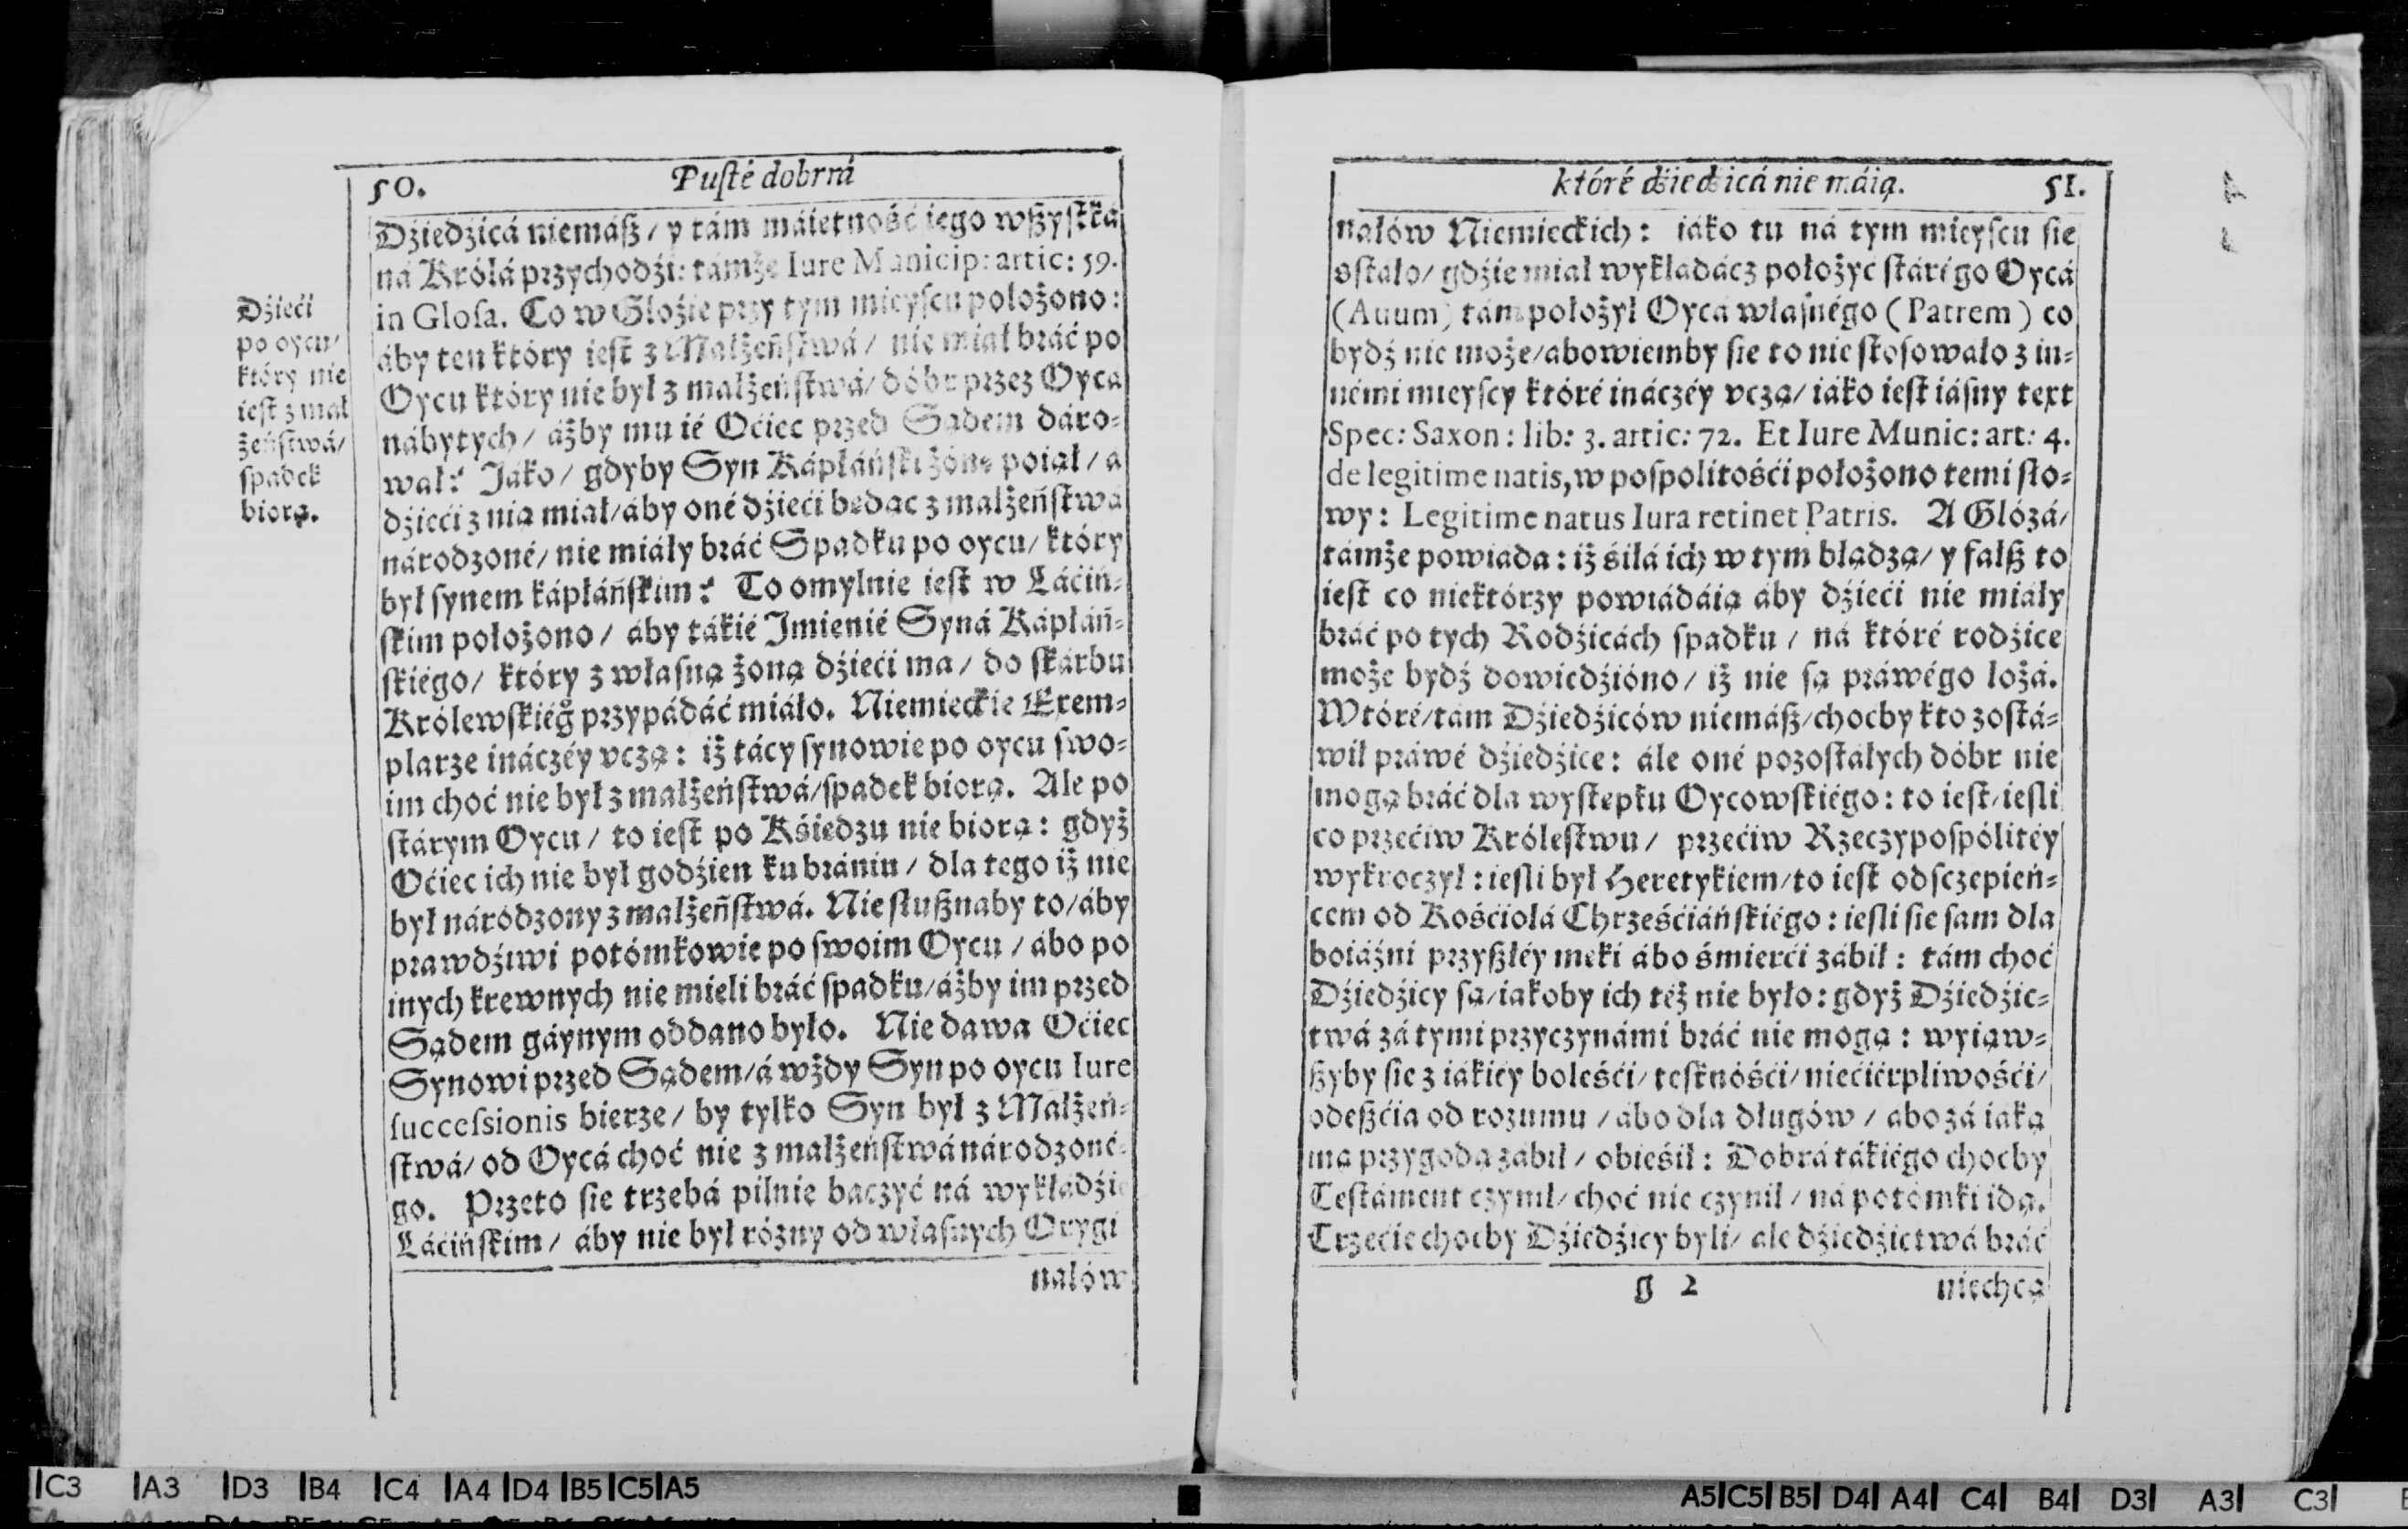 50. Puſté dobrrá
Dźiedźicá niemáſz / y tám máiętność iego wſzyſtká
ná Królá przychodźi: támże Iure Municip: artic: 59.
in Gloſa. Co w Gloźie przy tym mieyſcu położono:
áby ten który ieſt z Małżeńſtwá / nie miał bráć po
Oycu który nie był z małżeńſtwá / dóbr przez Oyca
nábytych / áżby mu ié Oćiec przed Sądem dáro-
wał: Jáko / gdyby Syn Kápłáńſki żónę poiął / a
dźieći z nią miał / áby oné dźieći będąc z małżeńſtwá
národzoné / nie miáły bráć Spadku po oycu / który
był ſynem kápłáńſkim: To omylnie ieſt w Láćiń-
ſkim położono / áby tákié Jmienié Syná Kápłáń-
ſkiégo / który z właſną żoną dźieći ma / do ſkárbu
Królewſkiég° przypádáć miáło. Niemieckie Exem-
plarze ináczéy vczą: iż tácy ſynowie po oycu ſwo-
im choć nie był z małżeńſtwá / ſpadek biorą. Ale po
ſtárym Oycu / to ieſt po Kśiędzu nie biorą: gdyż
Oćiec ich nie był godźien ku brániu / dla tego iż nie
był národzony z małżeńſtwá. Nie ſłuſznaby to / áby
prawdźiwi potómkowie po ſwoim Oycu / ábo po
inych krewnych nie mieli bráć ſpadku / áżby im przed
Sądem gáynym oddano było. Nie dawa Oćiec
Synowi przed Sądem / á wżdy Syn po oycu Iure
ſucceſsionis bierze / by tylko Syn był z Małżeń-
ſtwá / od Oycá choć nie z małżeńſtwá národzoné-
go. Przeto ſie trzebá pilnie baczyć ná wykłádźie
Láćińſkim / áby nie był rózny od właſnych Orygi
nałów
Dźieći
po oycu /
który nie
ieſt z mał
żeńſtwá /
ſpadek
biorą.
któré dźiedźicá nie máią. 51.
nałów Niemieckich: iáko tu ná tym mieyſcu ſie
oſtało / gdźie miał wykładácz położyć ſtárégo Oycá
(Auum) tám położył Oycá właſnégo (Patrem) co
bydź nie może / abowiemby ſie to nie ſtoſowało z in-
némi mieyſcy któré ináczéy vczą / iáko ieſt iáſny text
Spec: Saxon: lib: 3. artic: 72. Et Iure Munic: art: 4.
de legitime natis, w poſpolitośći położono temi ſło-
wy: Legitime natus Iura retinet Patris. A Glózá /
támże powiáda: iż śiłá ich w tym błądzą / y fałſz to
ieſt co niektórzy powiádáią áby dźieći nie miáły
bráć po tych Rodźicách ſpadku / ná któré rodźice
może bydź dowiedźióno / iż nie ſą práwégo łożá.
Wtóré / tám Dźiedźiców niemáſz / choćby kto zoſtá-
wił práwé dźiedźice: ále oné pozoſtáłych dóbr nie
mogą bráć dla wyſtępku Oycowſkiégo: to ieſt / ieſli
co przećiw Króleſtwu / przećiw Rzeczypoſpólitéy
wykroczył: ieſli był Heretykiem / to ieſt odſczepień-
cem od Kośćiołá Chrześćiáńſkiégo: ieſli ſie ſam dla
boiáźni przyſzłéy męki ábo śmierći zábił: tám choć
Dźiedźicy ſą / iakoby ich téż nie było: gdyż Dźiedźic-
twá zá tymi przyczynámi bráć nie mogą: wyiąw-
ſzyby ſie z iákiéy boleśći / teſknóśći / niećiérpliwośći /
odeſzćia od rozumu / ábo dla długów / abo zá iaką
iną przygodą zábił / obieśił: Dobrá tákiégo choćby
Teſtáment czynił / choć nie czynił / ná potómki idą.
Trzećie choćby Dźiedźicy byli / ale dźiedźictwá bráć
g 2 niechcą
C3 A3 D3 B4 C4 A4 D4 B5 C5 A5
A5 C5 B5 D4 A4 C4 B4 D3 A3 C3